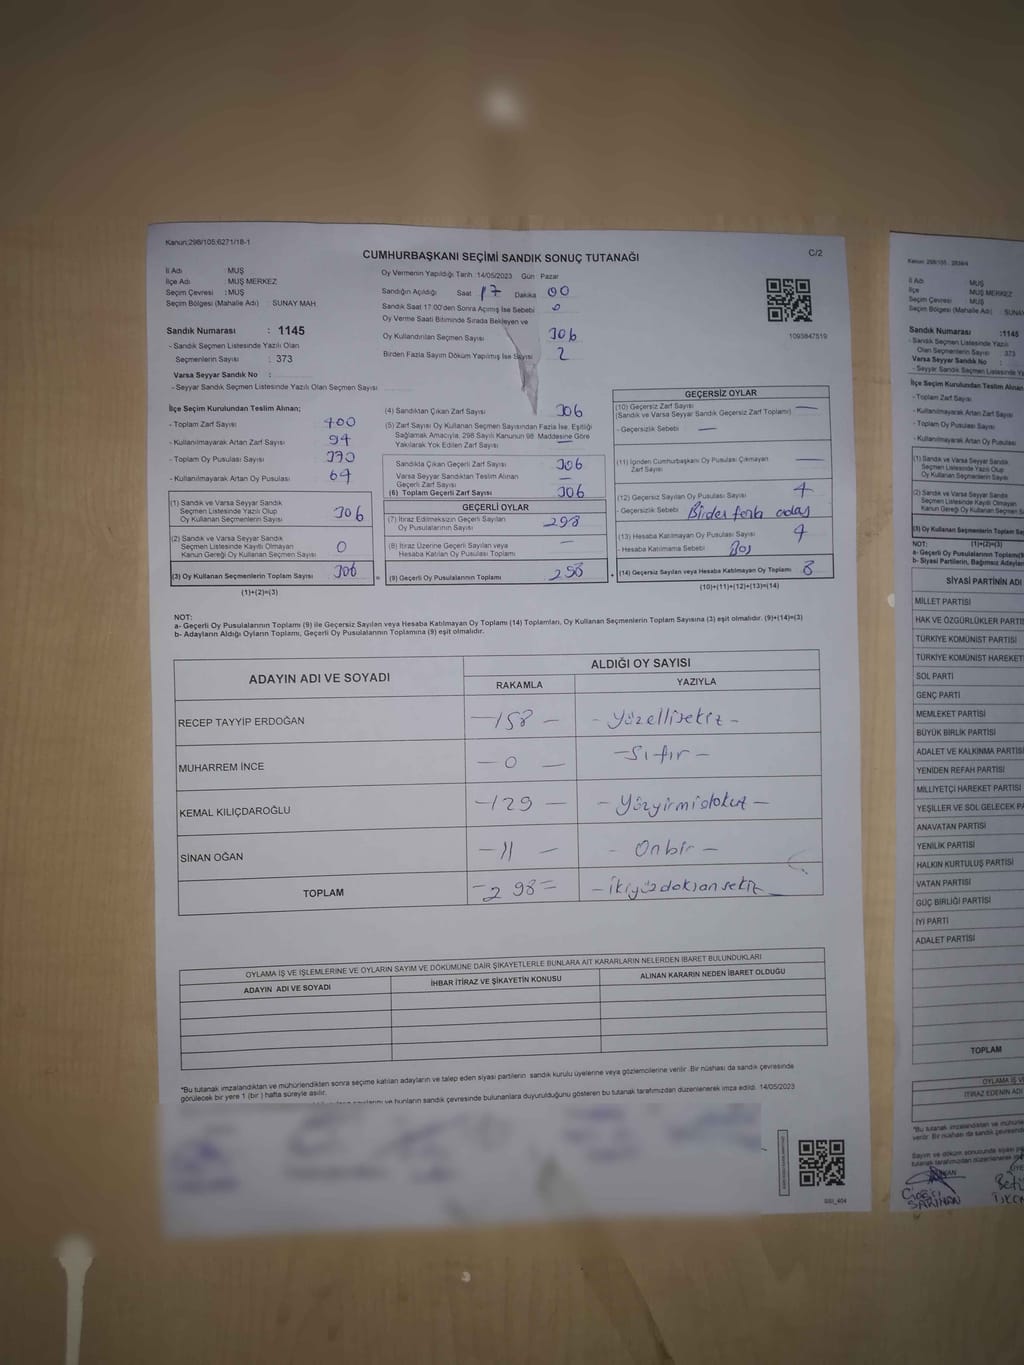 Kanun:298/105;6271/18-1
CUMHURBAŞKANI SEÇİMİ SANDIK SONUÇ TUTANAĞI
C/2
İl Adı : MUŞ
İlçe Adı : MUŞ MERKEZ
Seçim Çevresi : MUŞ
Seçim Bölgesi (Mahalle Adı) SUNAY MAH.
Sandık Numarası : 1145
- Sandık Seçmen Listesinde Yazılı Olan
Seçmenlerin Sayısı : 373
Varsa Seyyar Sandık No :
- Seyyar Sandık Seçmen Listesinde Yazılı Olan Seçmen Sayısı
Oy Vermenin Yapıldığı Tarih :14/05/2023 Gün Pazar
Sandığın Açıldığı Saat 17 Dakika 00
Sandık Saat 17:00'den Sonra Açımış İse Sebebi 0
Oy Verme Saati Bitiminde Sırada Bekleyen ve
Oy Kullandırılan Seçmen Sayısı 306
Birden Fazla Sayım Döküm Yapılmış İse Sayısı 2
1093847519
İlçe Seçim Kurulundan Teslim Alınan;
- Toplam Zarf Sayısı 400
- Kullanılmayarak Artan Zarf Sayısı 94
- Toplam Oy Pusulası Sayısı 370
- Kullanılmayarak Artan Oy Pusulası 64
(1) Sandık ve Varsa Seyyar Sandık
Seçmen Listesinde Yazılı Olup
Oy Kullanan Seçmenlerin Sayısı 306
(2) Sandık ve Varsa Seyyar Sandık
Seçmen Listesinde Kayıtlı Olmayan
Kanun Gereği Oy Kullanan Seçmen Sayısı 0
(3) Oy Kullanan Seçmenlerin Toplam Sayısı 306
(1)+(2)=(3)
(4) Sandıktan Çıkan Zarf Sayısı 306
(5) Zarf Sayısı Oy Kullanan Seçmen Sayısından Fazla İse, Eşitliği
Sağlamak Amacıyla; 298 Sayılı Kanunun 98. Maddesine Göre
Yakılarak Yok Edilen Zarf Sayısı —
Sandıkta Çıkan Geçerli Zarf Sayısı 306
Varsa Seyyar Sandıktan Teslim Alınan
Geçerli Zarf Sayısı —
(6) Toplam Geçerli Zarf Sayısı 306
GEÇERLİ OYLAR
(7) İtiraz Edilmeksizin Geçerli Sayılan
Oy Pusulalarının Sayısı 298
(8) İtiraz Üzerine Geçerli Sayılan veya
Hesaba Katılan Oy Pusulası Toplamı —
= (9) Geçerli Oy Pusulalarının Toplamı 298
GEÇERSİZ OYLAR
(10) Geçersiz Zarf Sayısı
(Sandık ve Varsa Seyyar Sandık Geçersiz Zarf Toplamı) —
- Geçersizlik Sebebi —
(11) İçinden Cumhurbaşkanı Oy Pusulası Çıkmayan
Zarf Sayısı —
(12) Geçersiz Sayılan Oy Pusulası Sayısı 4
- Geçersizlik Sebebi
(13) Hesaba Katılmayan Oy Pusulası 4
- Hesaba Katılmama Sebebi Boş
+ (14) Geçersiz Sayılan veya Hesaba Katılmayan Oy Toplamı 8
(10)+(11)+(12)+(13)=(14)
NOT:
a- Geçerli Oy Pusulalarının Toplamı (9) ile Geçersiz Sayılan veya Hesaba Katılmayan Oy Toplamı (14) Toplamları, Oy Kullanan Seçmenlerin Toplam Sayısına (3) eşit olmalıdır. (9)+(14)=(3)
b- Adayların Aldığı Oyların Toplamı, Geçerli Oy Pusulalarının Toplamına (9) eşit olmalıdır.
ADAYIN ADI VE SOYADI
ALDIĞI OY SAYISI
RAKAMLA YAZIYLA
RECEP TAYYİP ERDOĞAN —158— -Yüzellisekiz-
MUHARREM İNCE —0— —Sıfır—
KEMAL KILIÇDAROĞLU —129— -Yüzyirmidokuz-
SİNAN OĞAN —11— - Onbir -
TOPLAM —298= -ikiyüzdoksansekiz
OYLAMA İŞ VE İŞLEMLERİNE VE OYLARIN SAYIM VE DÖKÜMÜNE DAİR ŞİKAYETLERLE BUNLARA AİT KARARLARIN NELERDEN İBARET BULUNDUKLARI
ADAYIN ADI VE SOYADI İHBAR İTİRAZ VE ŞİKAYETİN KONUSU ALINAN KARARIN NEDEN İBARET OLDUĞU
*Bu tutanak imzalandıktan ve mühürlendikten sonra seçime katılan adayların ve talep eden siyasi partilerin sandık kurulu üyelerine veya gözlemcilerine verilir. Bir nüshası da sandık çevresinde
görülecek bir yere 1 (bir) hafta süreyle asılır.
ve bunların sandık çevresinde bulunanlara duyurulduğunu gösteren bu tutanak tarafımızdan düzenlenerek imza edildi. 14/05/2023
İl Adı MUŞ
İlçe MUŞ MERKEZ
Seçim Çevresi MUŞ
Seçim Bölgesi (Mahalle Adı) SUNAY
Sandık Numarası :1145
- Sandık Seçmen Listesinde Yazılı
Olan Seçmenlerin Sayısı 373
Varsa Seyyar Sandık No :
İlçe Seçim Kurulundan Teslim Alınan
- Toplam Zarf Sayısı
- Kullanılmayarak Artan Zarf Sayısı
- Toplam Oy Pusulası Sayısı
- Kullanılmayarak Artan Oy Pusulası
(1) Sandık ve Varsa Seyyar Sandık
Seçmen Listesinde Yazılı Olup
Oy Kullanan Seçmenlerin Sayısı
(2) Sandık ve Varsa Seyyar Sandık
Seçmen Listesinde Kayıtlı Olmayan
Kanun Gereği Oy Kullanan Seçmen
(3) Oy Kullanan Seçmenlerin Toplam
NOT: (1)+(2)=(3)
a- Geçerli Oy Pusulalarının Toplamı
b- Siyasi Partilerin, Bağımsız
SİYASİ PARTİNİN ADI
MİLLET PARTİSİ
HAK VE ÖZGÜRLÜKLER PARTİSİ
TÜRKİYE KOMÜNİST PARTİSİ
TÜRKİYE KOMÜNİST HAREKET
SOL PARTİ
GENÇ PARTİ
MEMLEKET PARTİSİ
BÜYÜK BİRLİK PARTİSİ
ADALET VE KALKINMA PARTİSİ
YENİDEN REFAH PARTİSİ
MİLLİYETÇİ HAREKET PARTİSİ
YEŞİLLER VE SOL GELECEK
ANAVATAN PARTİSİ
YENİLİK PARTİSİ
HALKIN KURTULUŞ PARTİSİ
VATAN PARTİSİ
GÜÇ BİRLİĞİ PARTİSİ
İYİ PARTİ
ADALET PARTİSİ
TOPLAM
OYLAMA İŞ
İTİRAZ EDENİN ADI